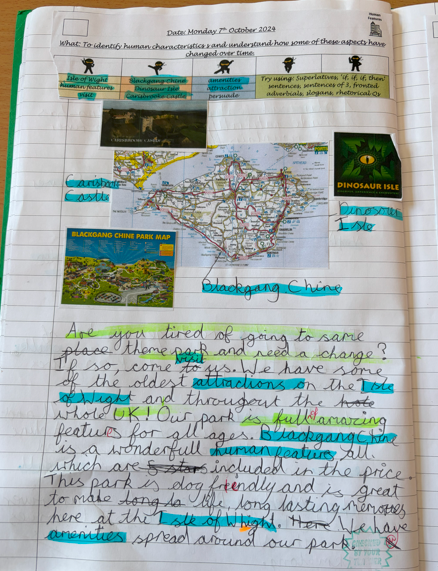 Human Features
Date: Monday 7th October 2024
What: To identify human characteristics and understand how some of these aspects have changed over time.
Isle of Wight
human features
visit
Blackgang Chine
Dinosaur Isle
Carisbrooke Castle
amenities
attraction
persuade
Try using: Superlatives, 'if, if, if, then' sentences, sentences of 3, fronted adverbials, slogans, rhetorical Qs
Castle
DINOSAUR ISLE
Isle
BLACKGANG CHINE PARK MAP
Blackgang Chine
Are you tired of going to same
place theme park and need a change?
If so, come to visit us. We have some
of the oldest attractions on the Isle
of Wight and throughout the
whole UK! Our park is full amazing
features for all ages. Blackgang Chine
is a wonderfull human feature all
which are 5 stars included in the price.
This park is dog friendly and is great
to make long la life, long lasting memories
here at the Isle of Whight. Here We have
amenities spread around our park.